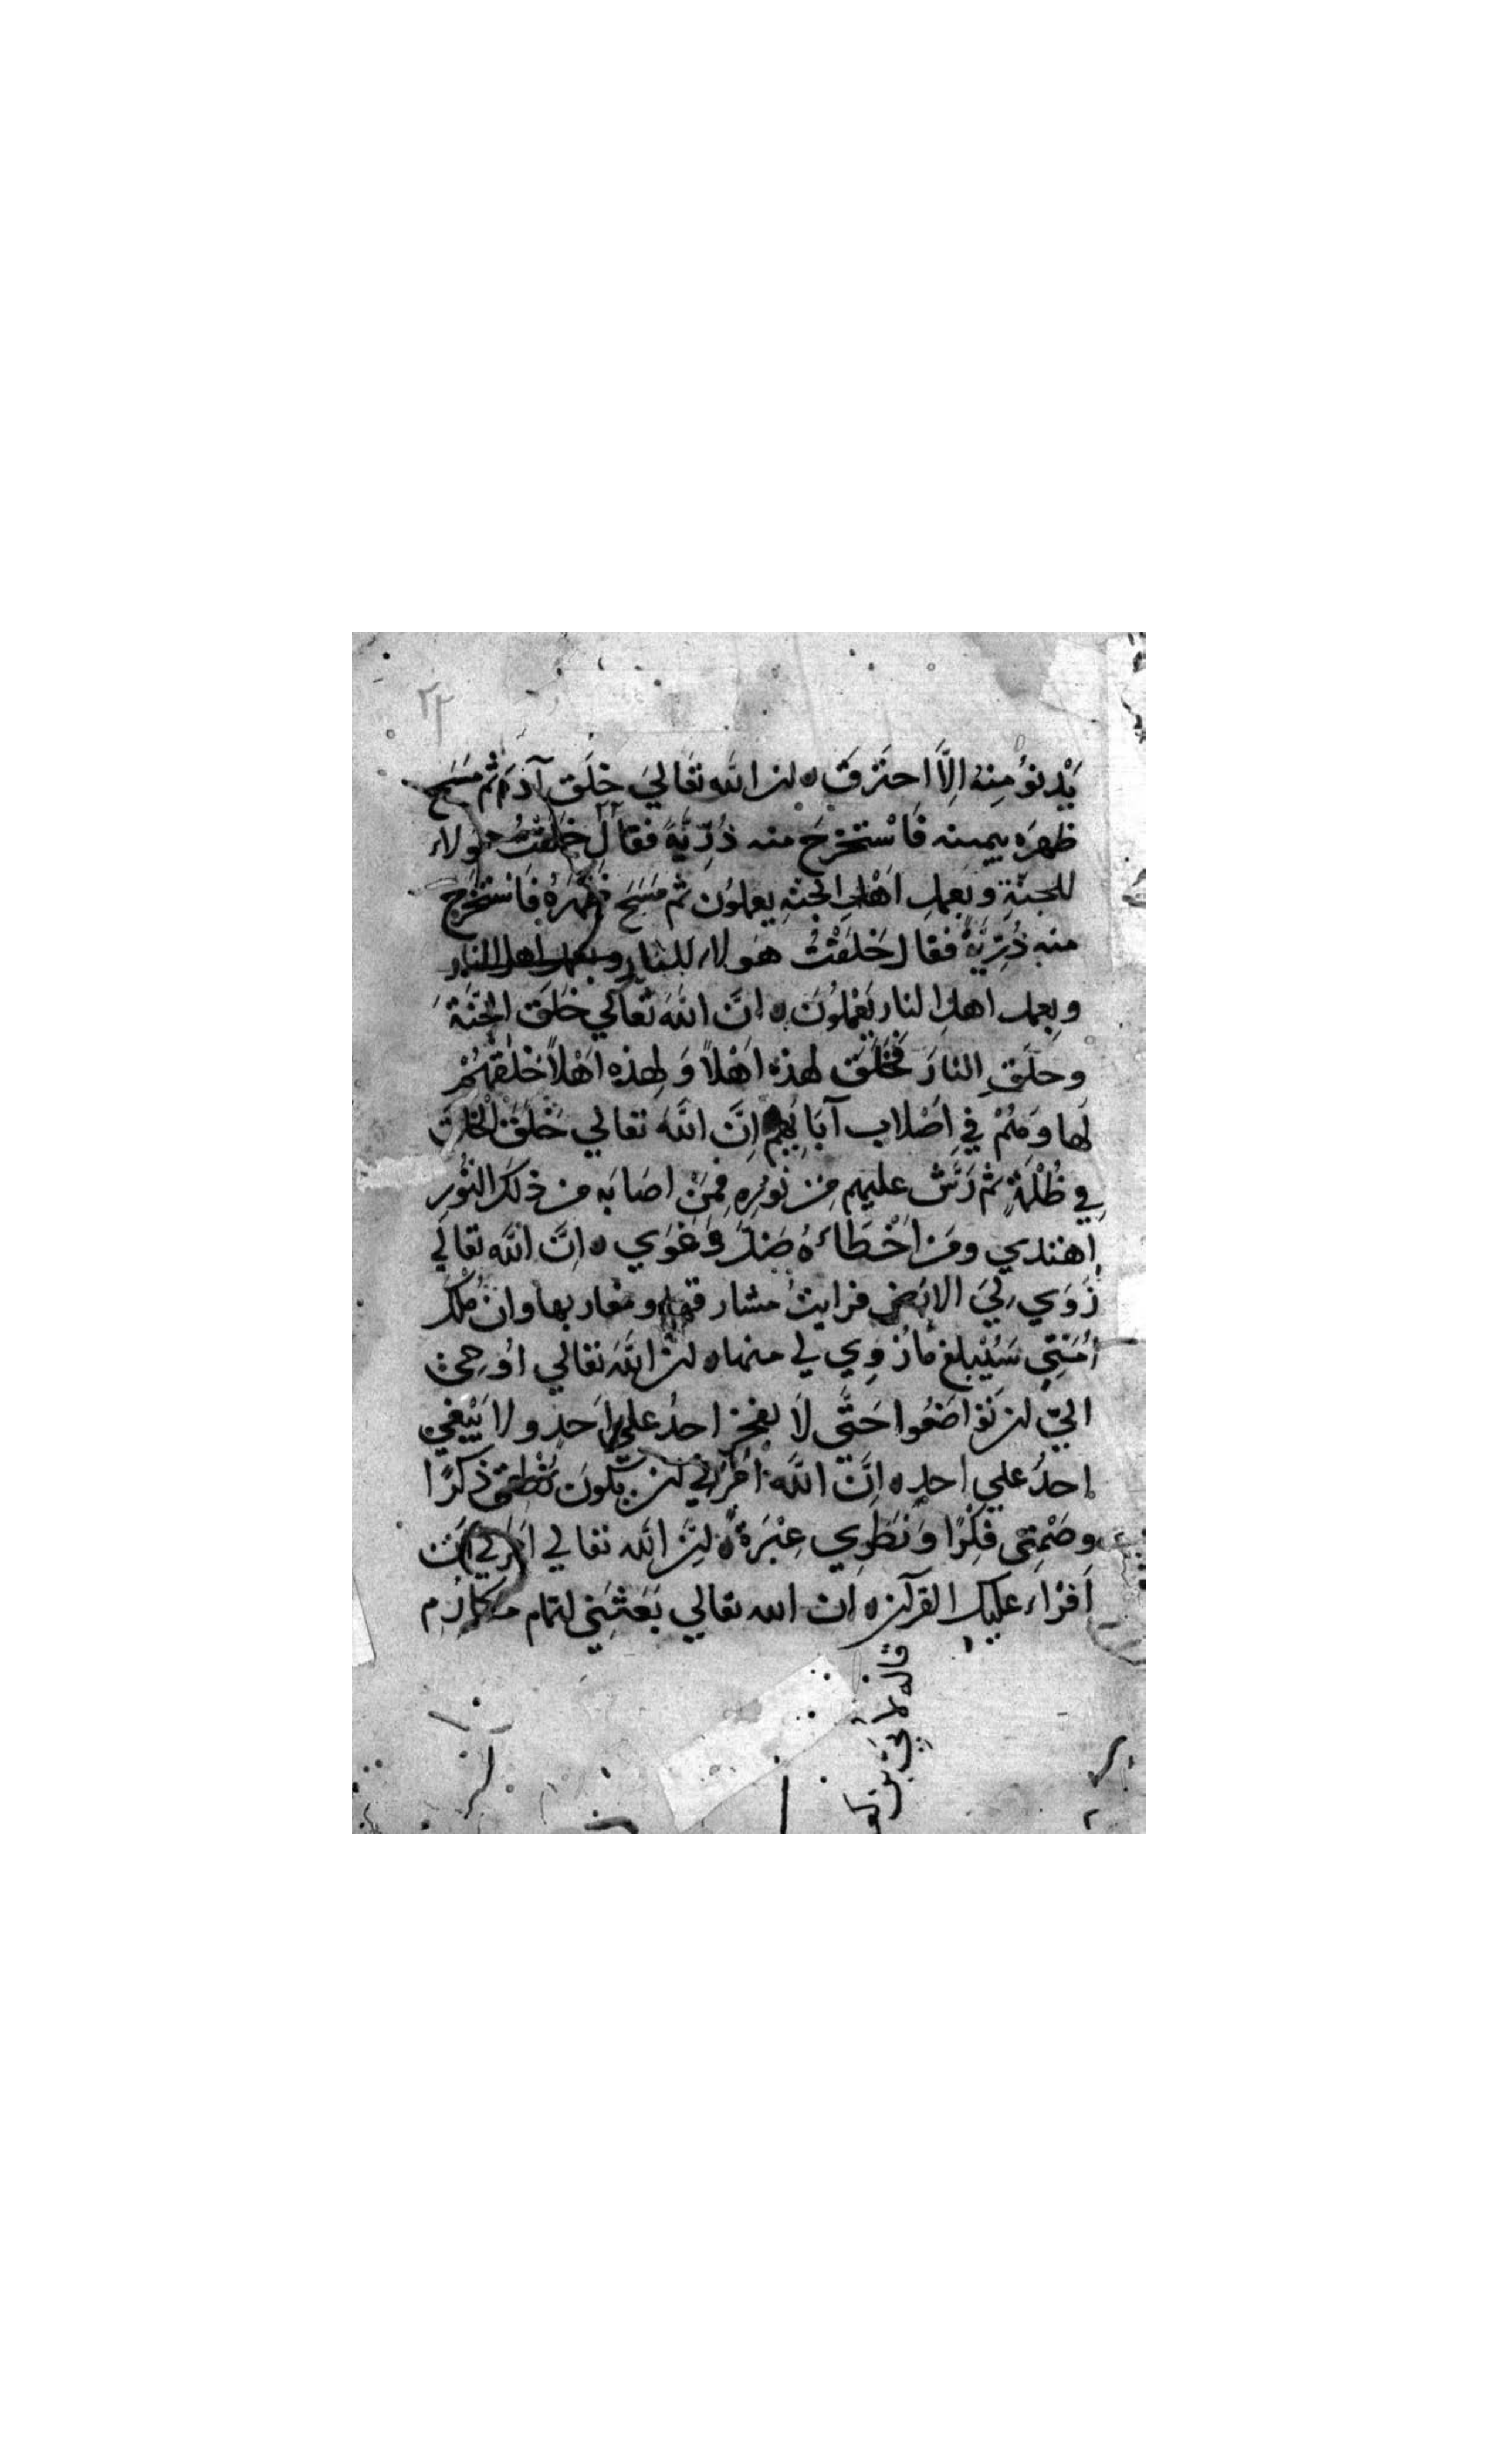 ٢٢
يَدْنوُ مِنهُ اِلَّا احتَرقَ ه ان الله تعَاليَ خلَق آدمَ ثم مَسَح
ظهرَه بيمينه فَاسْتخرجَ منه ذُرِّيَّةً فقال خلقْتُ هولاء
للجنّةِ وبعملِ اَهْلِ الجنّةِ يعملوُن ثم مَسَحَ ظهرَهُ فاَستخرَج
منه ذُرِّيَّةً فقال خَلقْتُ هَولاء للنارِ وبعمل اهل النار
وبعمل اهلِ النار يَعْملُونَ ه انَّ اللهَ تعالي خلَق الجنّةَ
وخلَقِ النارَ فخلَق لهذه اَهْلاً وَلهذه اَهْلاً خلقهُمْ
لَها وَهُمْ فِي اَصْلاب آبَايهِم اِنَّ اللهَ تعالي خَلَقَ الخلق
فِي ظُلْمَةٍ ثم رَشَّ عليهم مِن نُورِه فمَنْ اصَابَه من ذلكَ النُّورِ
اهتدي ومَن اَخْطاءَهُ ضلَّ وَغوَي ه انَّ الله تعَالَي
زَوَي لِيَ الارَضَ فرايتُ مشارقها ومغاربها وان مُلكَ
اُمَّتِي سَيَبلغ مَا زُوِي لي منها ه انّ اللهَ تعالي اوُحيَ
اليّ ان تَوَاضَعُوا حَتَّى لَا يفخرَ احدٌ علي اَحَدٍ ولا يَبْغي
احدٌ علي احدٍ ه اِنَّ اللهَ اَمَرَني ان يّكونَ نُطْقي ذكرًا
وصَمْتي فكْرًا وَنَظَرِي عِبْرَةً ه انَّ الله تعالي امَرَني اَن
اَقرْاءَ عليك القرآن ه ان الله تعالي بَعَثَنِي لتمام مكارَم
قاله لأبيّ بن كعب